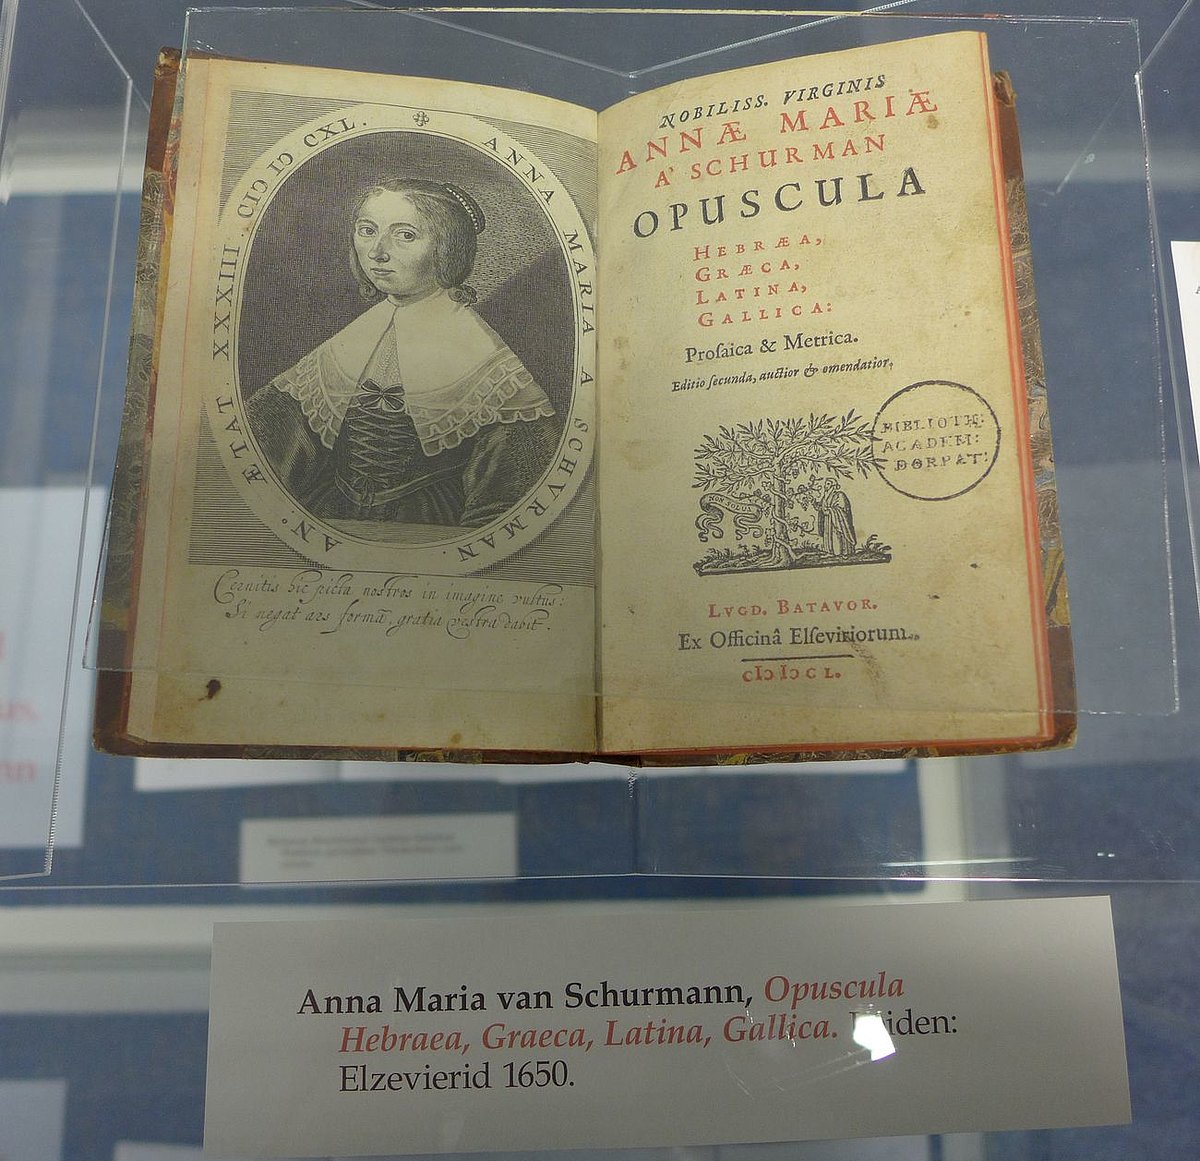 ANNA MARIA A SCHVRMAN.
AN°. ÆTAT. XXXIII CIↃ IↃ CXL.
Cernitis hic picta nostros in imagine vultus:
Si negat ars formā, gratia vestra dabit.
NOBILISS. VIRGINIS
ANNÆ MARIÆ
A' SCHURMAN
OPUSCULA
HEBRÆA,
GRÆCA,
LATINA,
GALLICA:
Proſaica & Metrica.
Editio ſecunda, auctior & emendatior,
BIBLIOTH:
ACADEM:
DORPAT:
NON SOLUS
LVGD. BATAVOR.
Ex Officinâ Elſeviriorum.
CIↃ IↃ C L.
Anna Maria van Schurmann, Opuscula
Hebraea, Graeca, Latina, Gallica. Leiden:
Elzevierid 1650.